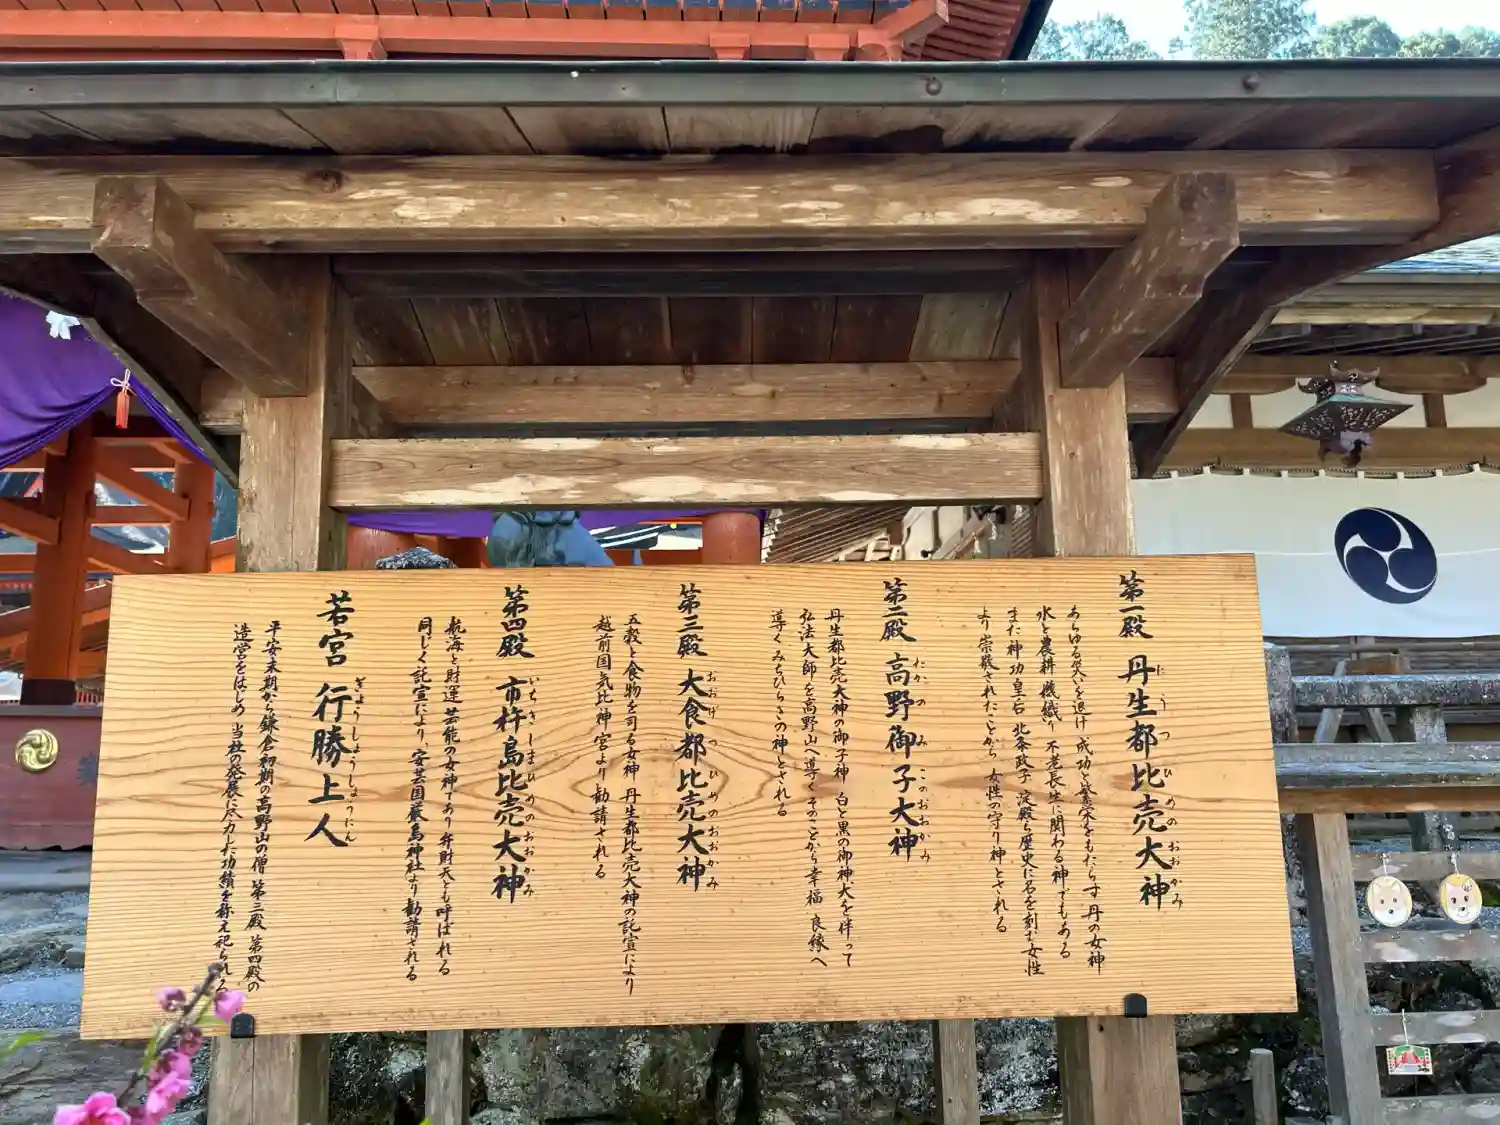 第一殿 丹生都比売大神
にうつひめのおおかみ
あらゆる災いを退け 成功と繁栄をもたらす丹の女神
水と農耕 機織り 不老長生に関わる神でもある
また神功皇后 北条政子 淀殿ら歴史に名を刻む女性
より崇敬されたことから 女性の守り神とされる
第二殿 高野御子大神
たかのみこのおおかみ
丹生都比売大神の御子神 白と黒の御神犬を伴って
弘法大師を高野山へ導くそのことから幸福 良縁へ
導くみちひらきの神とされる
第三殿 大食都比売大神
おおげつひめのおおかみ
五穀と食物を司る女神 丹生都比売大神の託宣により
越前国気比神宮より勧請される
第四殿 市杵島比売大神
いちきしまひめのおおかみ
航海と財運 芸能の女神であり弁財天とも呼ばれる
同じく託宣により、安芸国厳島神社より勧請される
若宮 行勝上人
ぎょうしょうしょうにん
平安末期から鎌倉初期の高野山の僧 第三殿 第四殿の
造営をはじめ 当社の発展に尽力した功績を称え祀られる